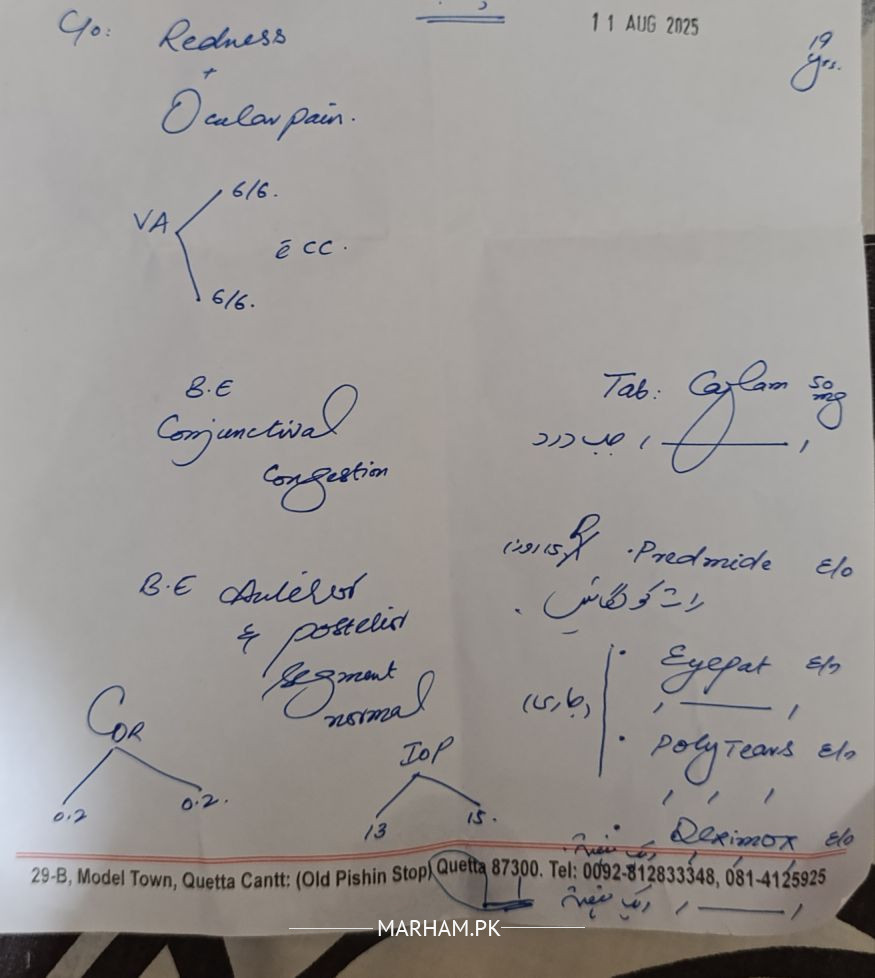 11 AUG 2025
19 yrs.
C/o: Redness
+
Ocular pain.
VA
6/6.
c̄ CC.
6/6.
B.E
Conjunctival
congestion
B.E Anterior
& posterior
segment
normal
CDR
0.2 0.2.
IOP
13 15.
Tab: Caflam 50 mg
1 ——— 1 جب درد
• Predmide E/o
رات کو لگائیں
• Eyepat E/o
1 ——— 1
• Poly Tears E/o
1 1 1
• Deximox E/o
ایک ہفتہ 1 1 1 1
29-B, Model Town, Quetta Cantt: (Old Pishin Stop) Quetta 87300. Tel: 0092-812833348, 081-4125925
ایک ہفتہ 1 ——— 1
MARHAM.PK